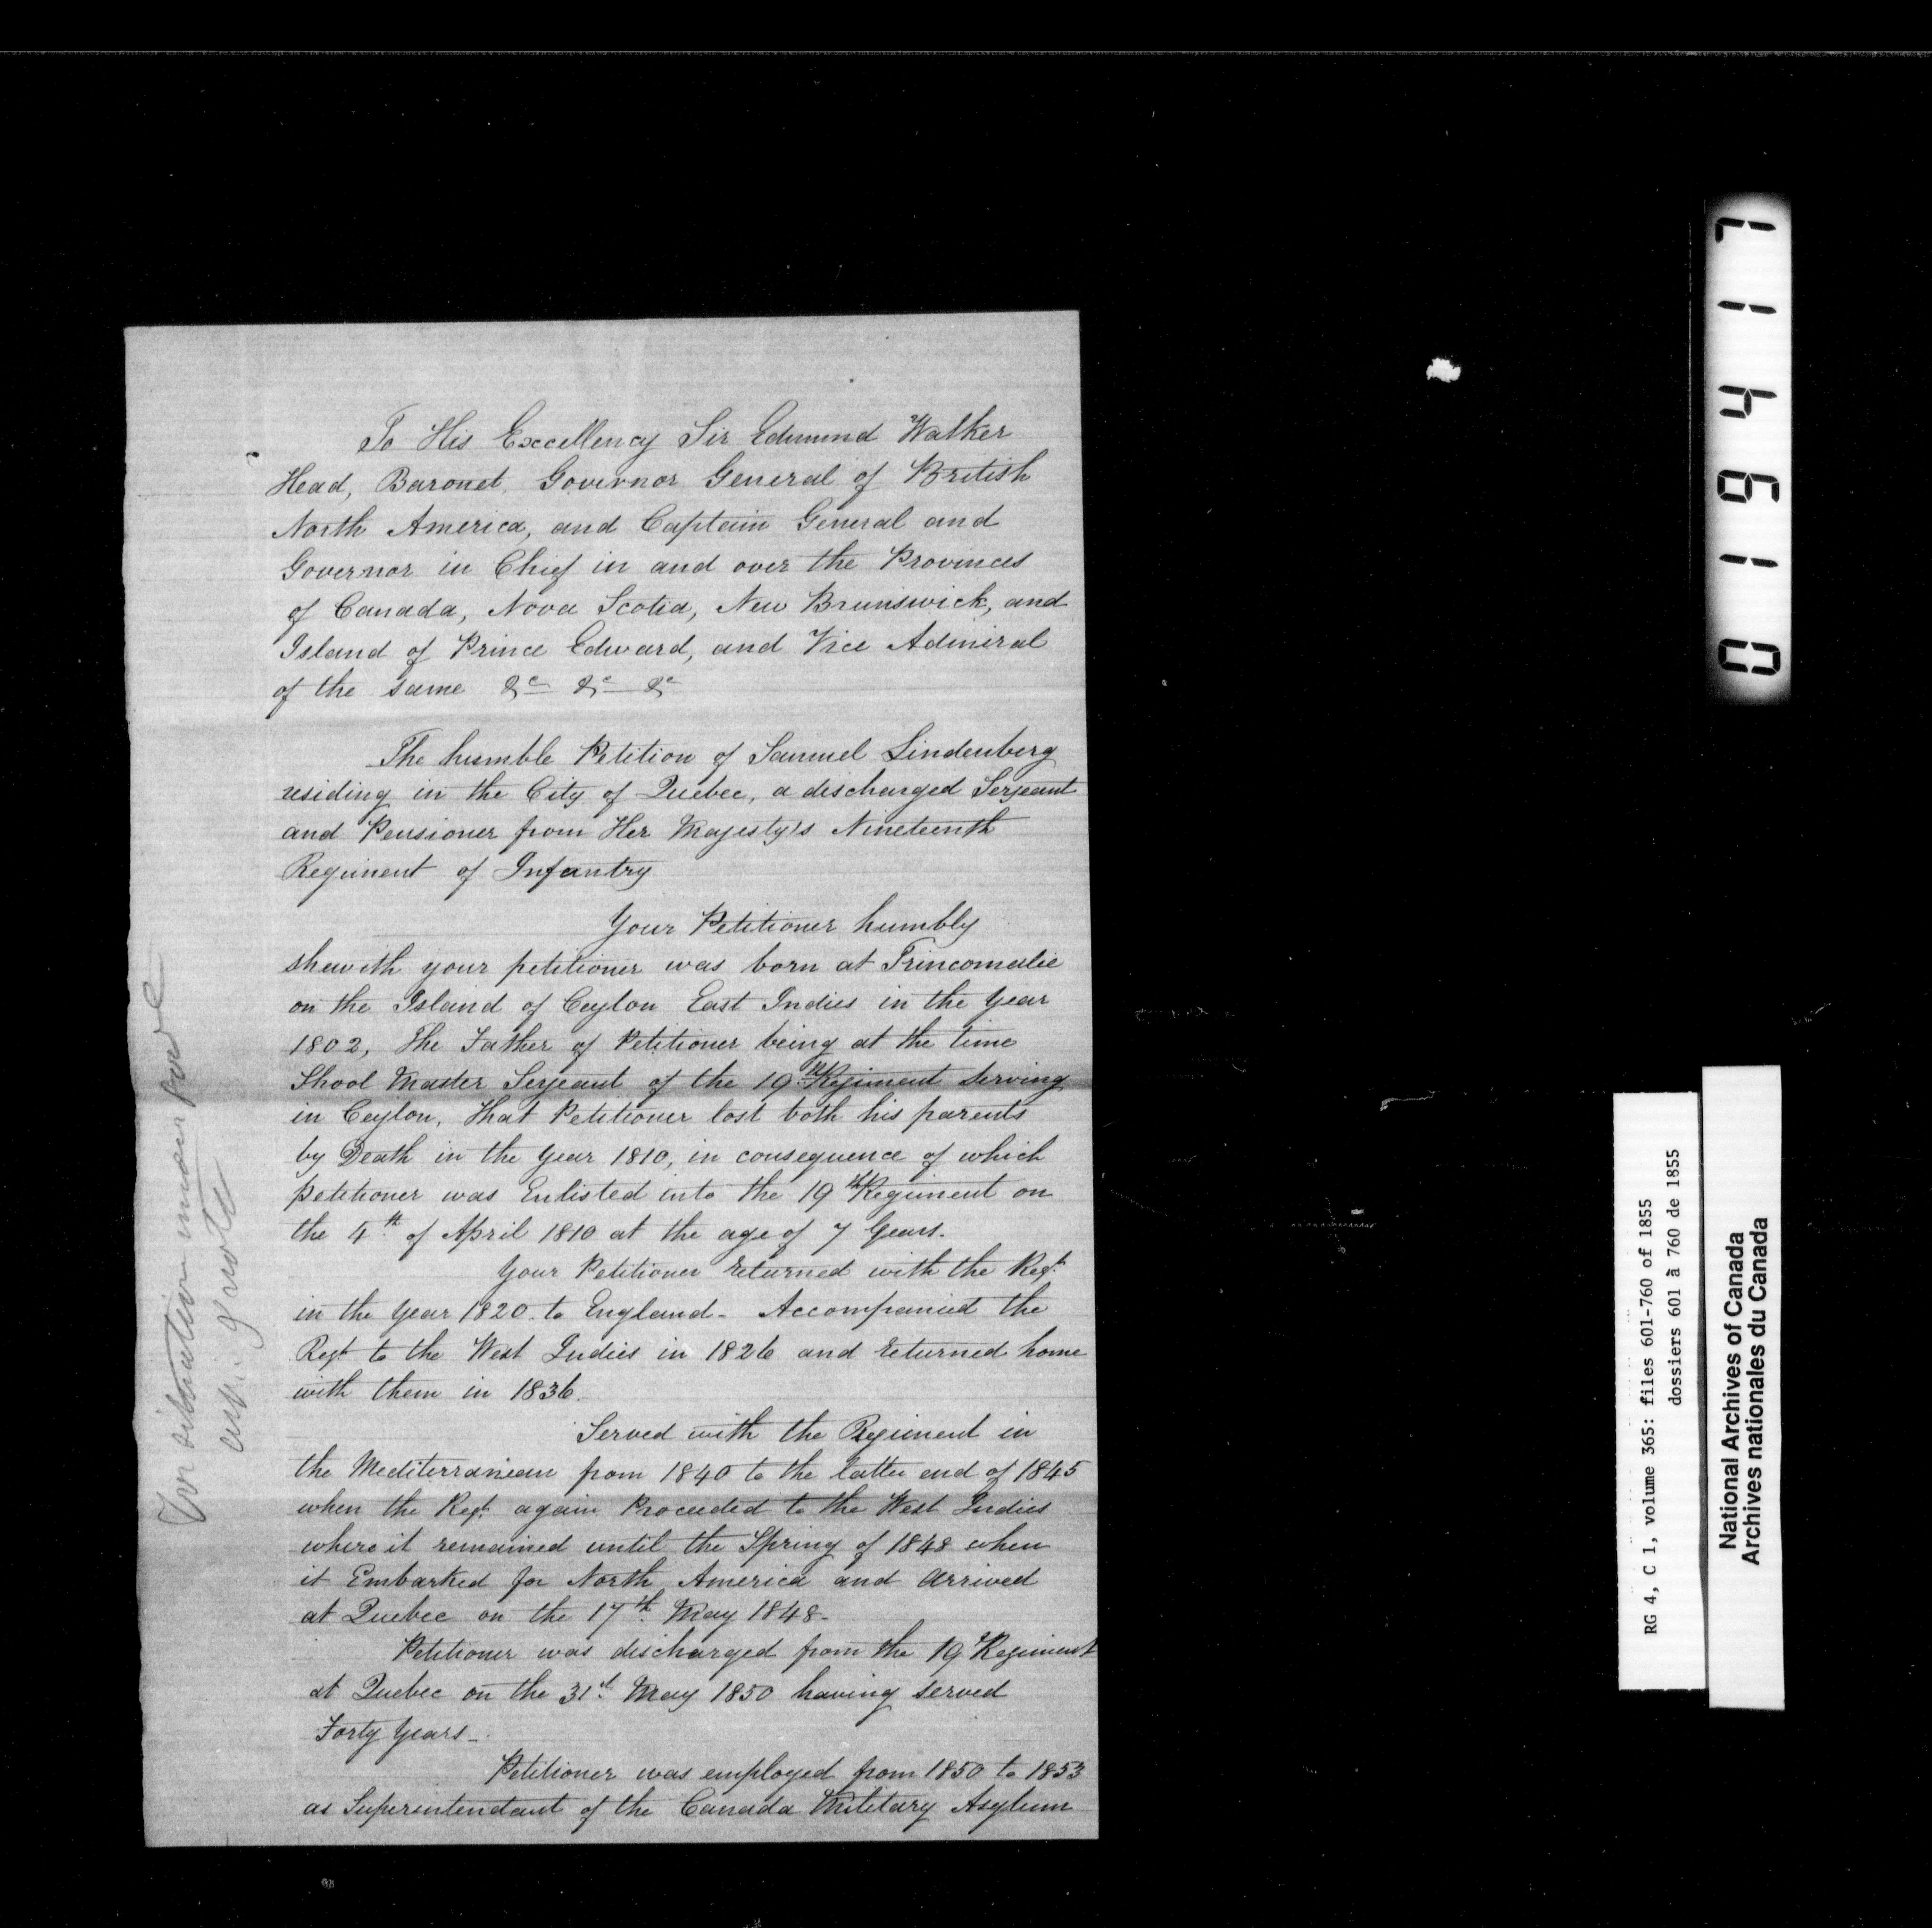 To His Excellency Sir Edmund Walker
Head, Baronet, Governor General of British
North America, and Captain General and
Governor in Chief in and over the Provinces
of Canada, Nova Scotia, New Brunswick, and
Island of Prince Edward, and Vice Admiral
of the same &c &c &c
The humble Petition of Samuel Lindenberg
residing in the City of Quebec, a discharged Serjeant
and Pensioner from Her Majesty's Nineteenth
Regiment of Infantry
Your Petitioner humbly
shewith your petitioner was born at Trincomalie
on the Island of Ceylon East Indies in the Year
1802, The Father of Petitioner being at the time
Shool Master Serjeant of the 19th Regiment serving
in Ceylon, That Petitioner lost both his parents
by Death in the Year 1810, in consequence of which
petitioner was Enlisted into the 19th Regiment on
the 4th of April 1810 at the age of 7 Years.
Your Petitioner returned with the Regt
in the Year 1820 to England - Accompanied the
Regt to the West Indies in 1826 and returned home
with them in 1836.
Served with the Regiment in
the Mediterranean from 1840 to the latter end of 1845
when the Regt. again Proceeded to the West Indies
where it remained until the Spring of 1848 when
it Embarked for North America and Arrived
at Quebec on the 17th May 1848-
Petitioner was discharged from the 19 Regiment
at Quebec on the 31st May 1850 having served
Forty Years-
Petitioner was employed from 1850 to 1853
as Superintendant of the Canada Military Asylum
For situation under
019417
RG 4, C 1, volume 365: files 601-760 of 1855
dossiers 601 à 760 de 1855
National Archives of Canada
Archives nationales du Canada